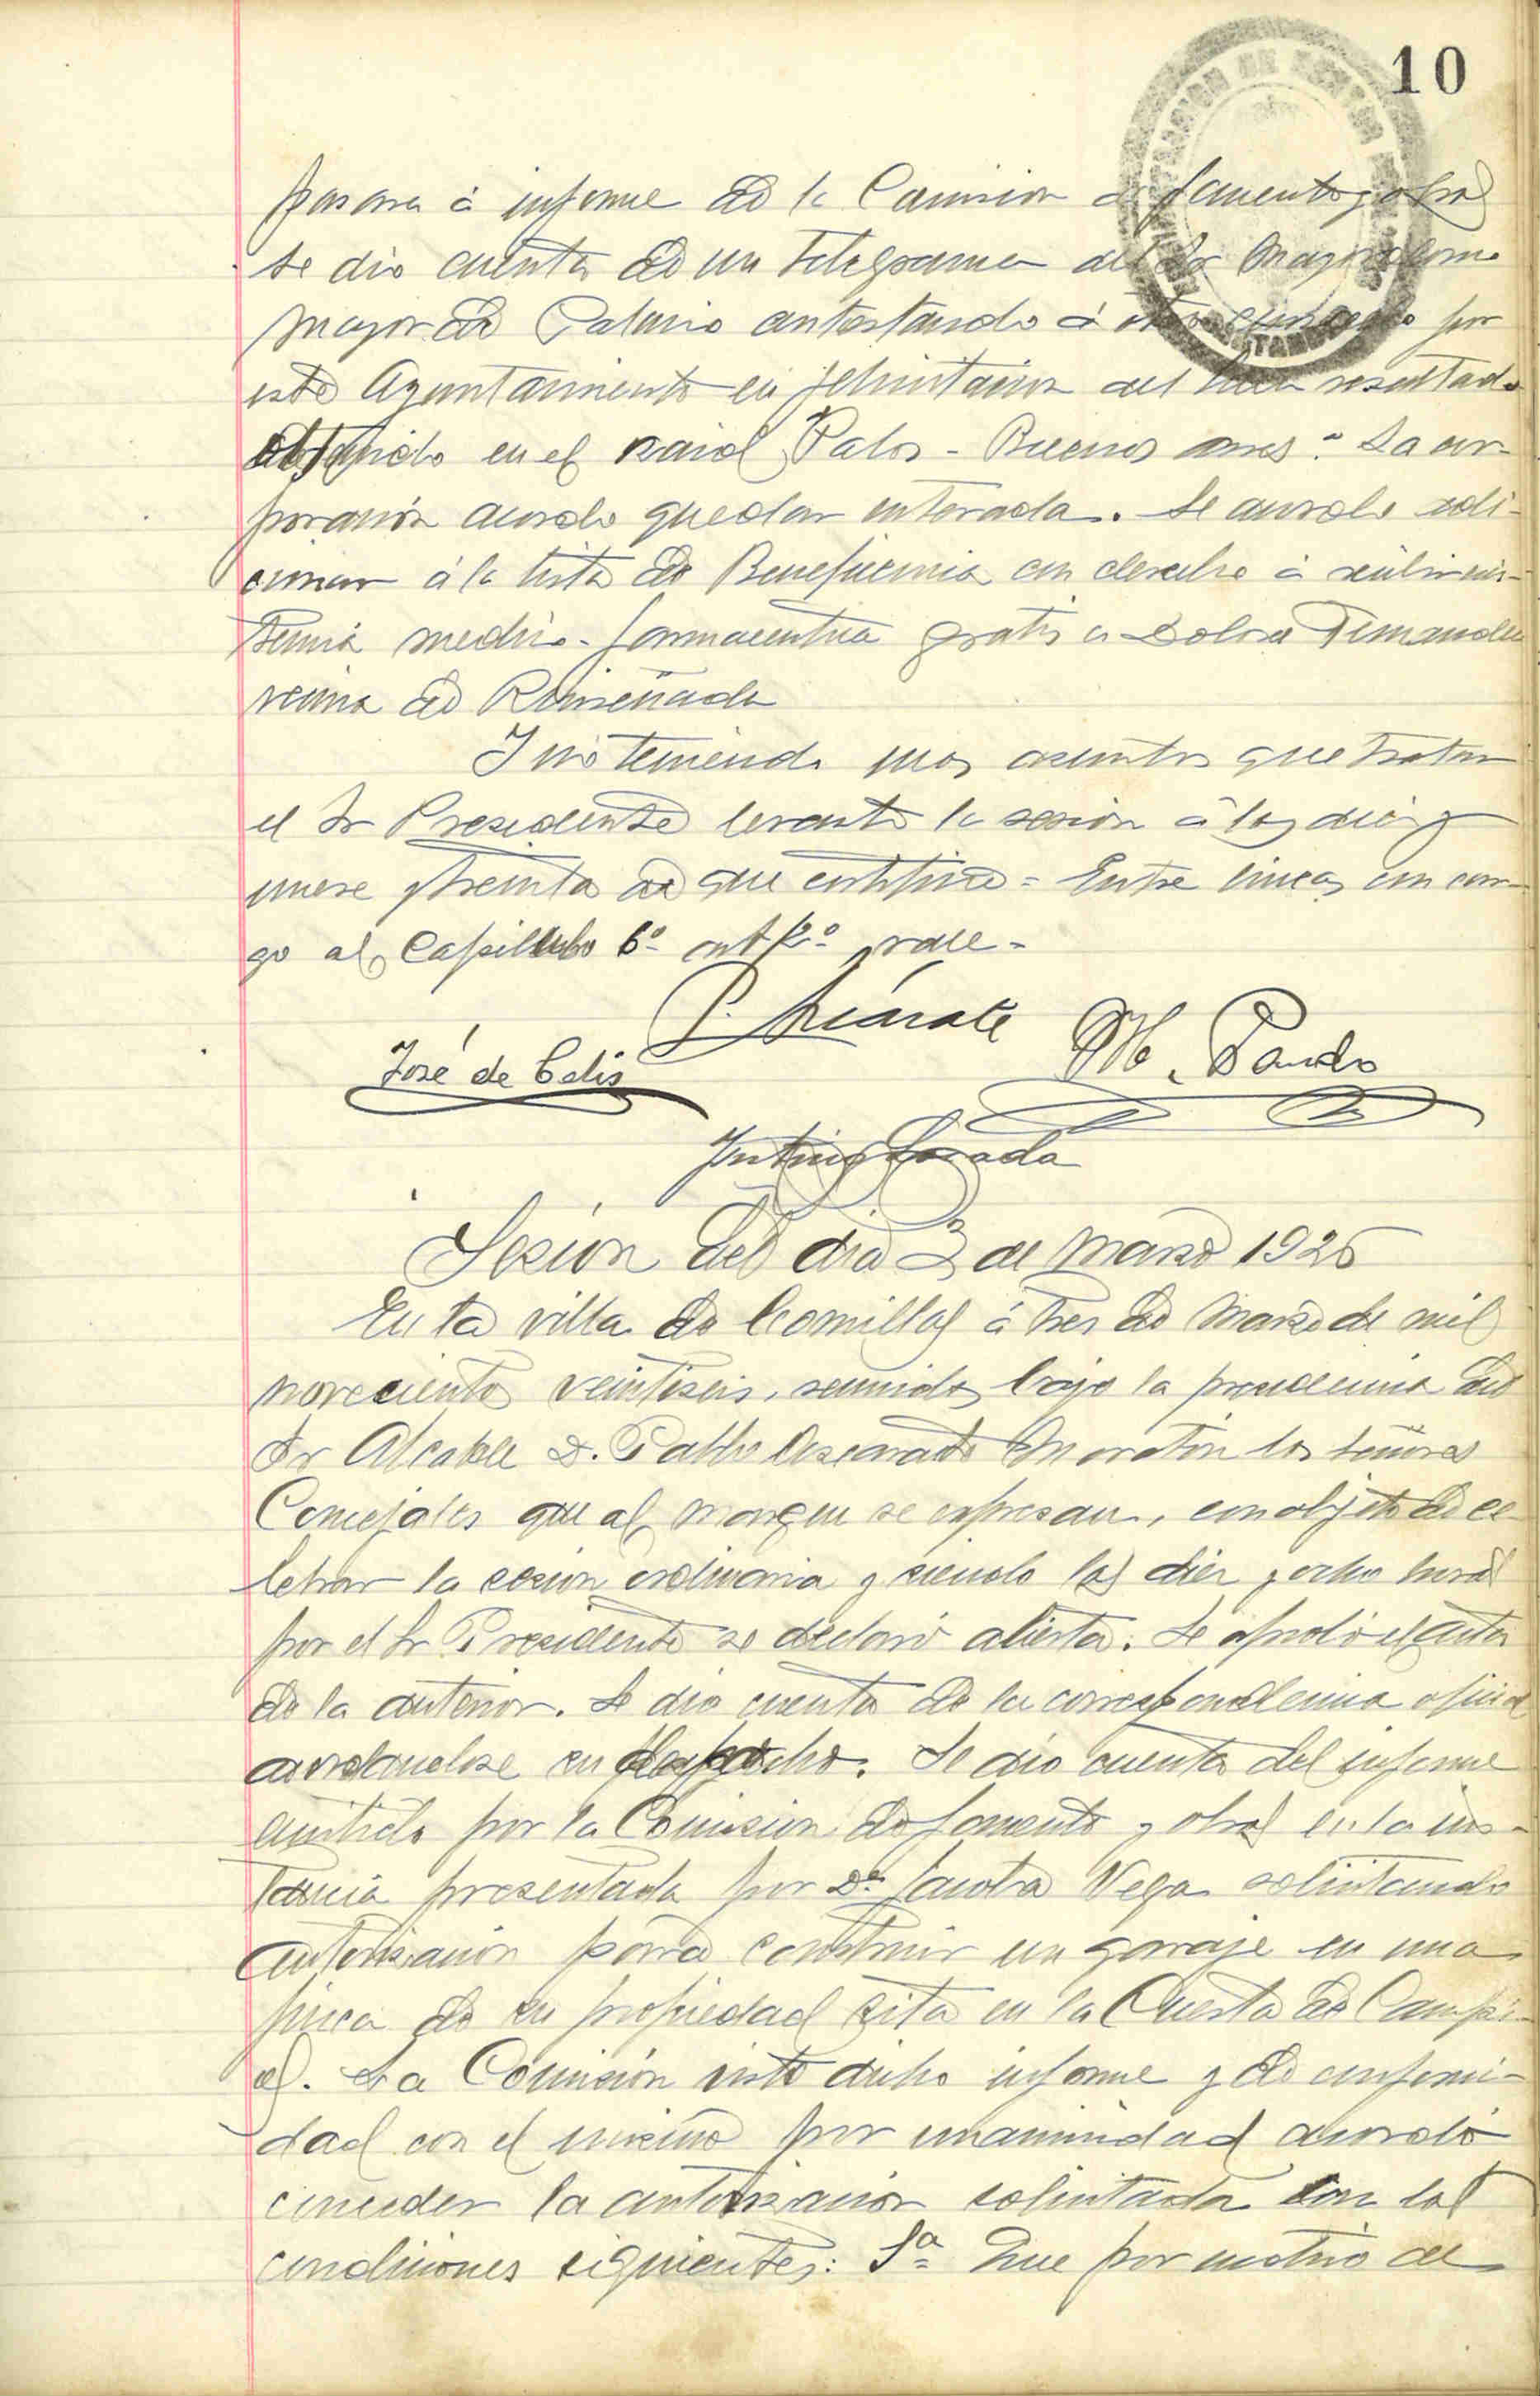 10
pasara á informe de la Comision de fomento y obras
se dio cuenta de un telegrama del Sr Mayordomo
mayor de Palacio contestando á otro por
este Ayuntamiento en felicitacion del buen resultado
obtenido en el raid Palos - Buenos aires". La cor-
poración acordo quedar enterada. Se acordo adi-
cionar á la lista de Beneficencia con derecho á asis-
tencia medico-farmaceutica gratis a Dolores Fernandez
vecina de Ruiseñada
Y no teniendo mas asuntos que tratar
el Sr Presidente levantó la sesión á las diez y
nueve y treinta de que certifico = Entre lineas con car-
go al Capitulo 6º art 2º vale -
P. M. Pando
José de Celis
Justino Posada
Sesion del dia 3 de Marzo 1926
En la villa de Comillas á tres de Marzo de mil
novecientos veintiseis, reunidos bajo la presidencia del
Sr Alcalde D. Pablo Moratin los señores
Concejales que al margen se expresan, con objeto de ce-
lebrar la sesion ordinaria y siendo las diez y ocho horas
por el Sr Presidente se declaró abierta. Se aprobó el acta
de la anterior. Se dio cuenta de la correspondencia oficial
acordandose su despacho. Se dio cuenta del informe
emitido por la Comision de fomento y obras en la ins-
tancia presentada por Dª Jacoba Vega solicitando
autorizacion para construir un garaje en una
finca de su propiedad sita en la Cuesta de Campi-
os. La Comisión visto dicho informe y de conformi-
dad con el mismo por unanimidad acordó
conceder la autorizacion solicitada con las
condiciones siguientes: 1ª Que por motivo de